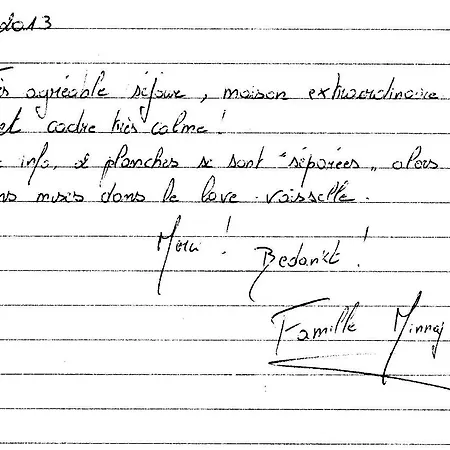 2013
ès agréable séjour, maison extraordinaire
et cadre très calme!
info, 2 planches se sont "séparées" alors
mises dans le lave-vaisselle.
Merci! Bedankt!
Famille